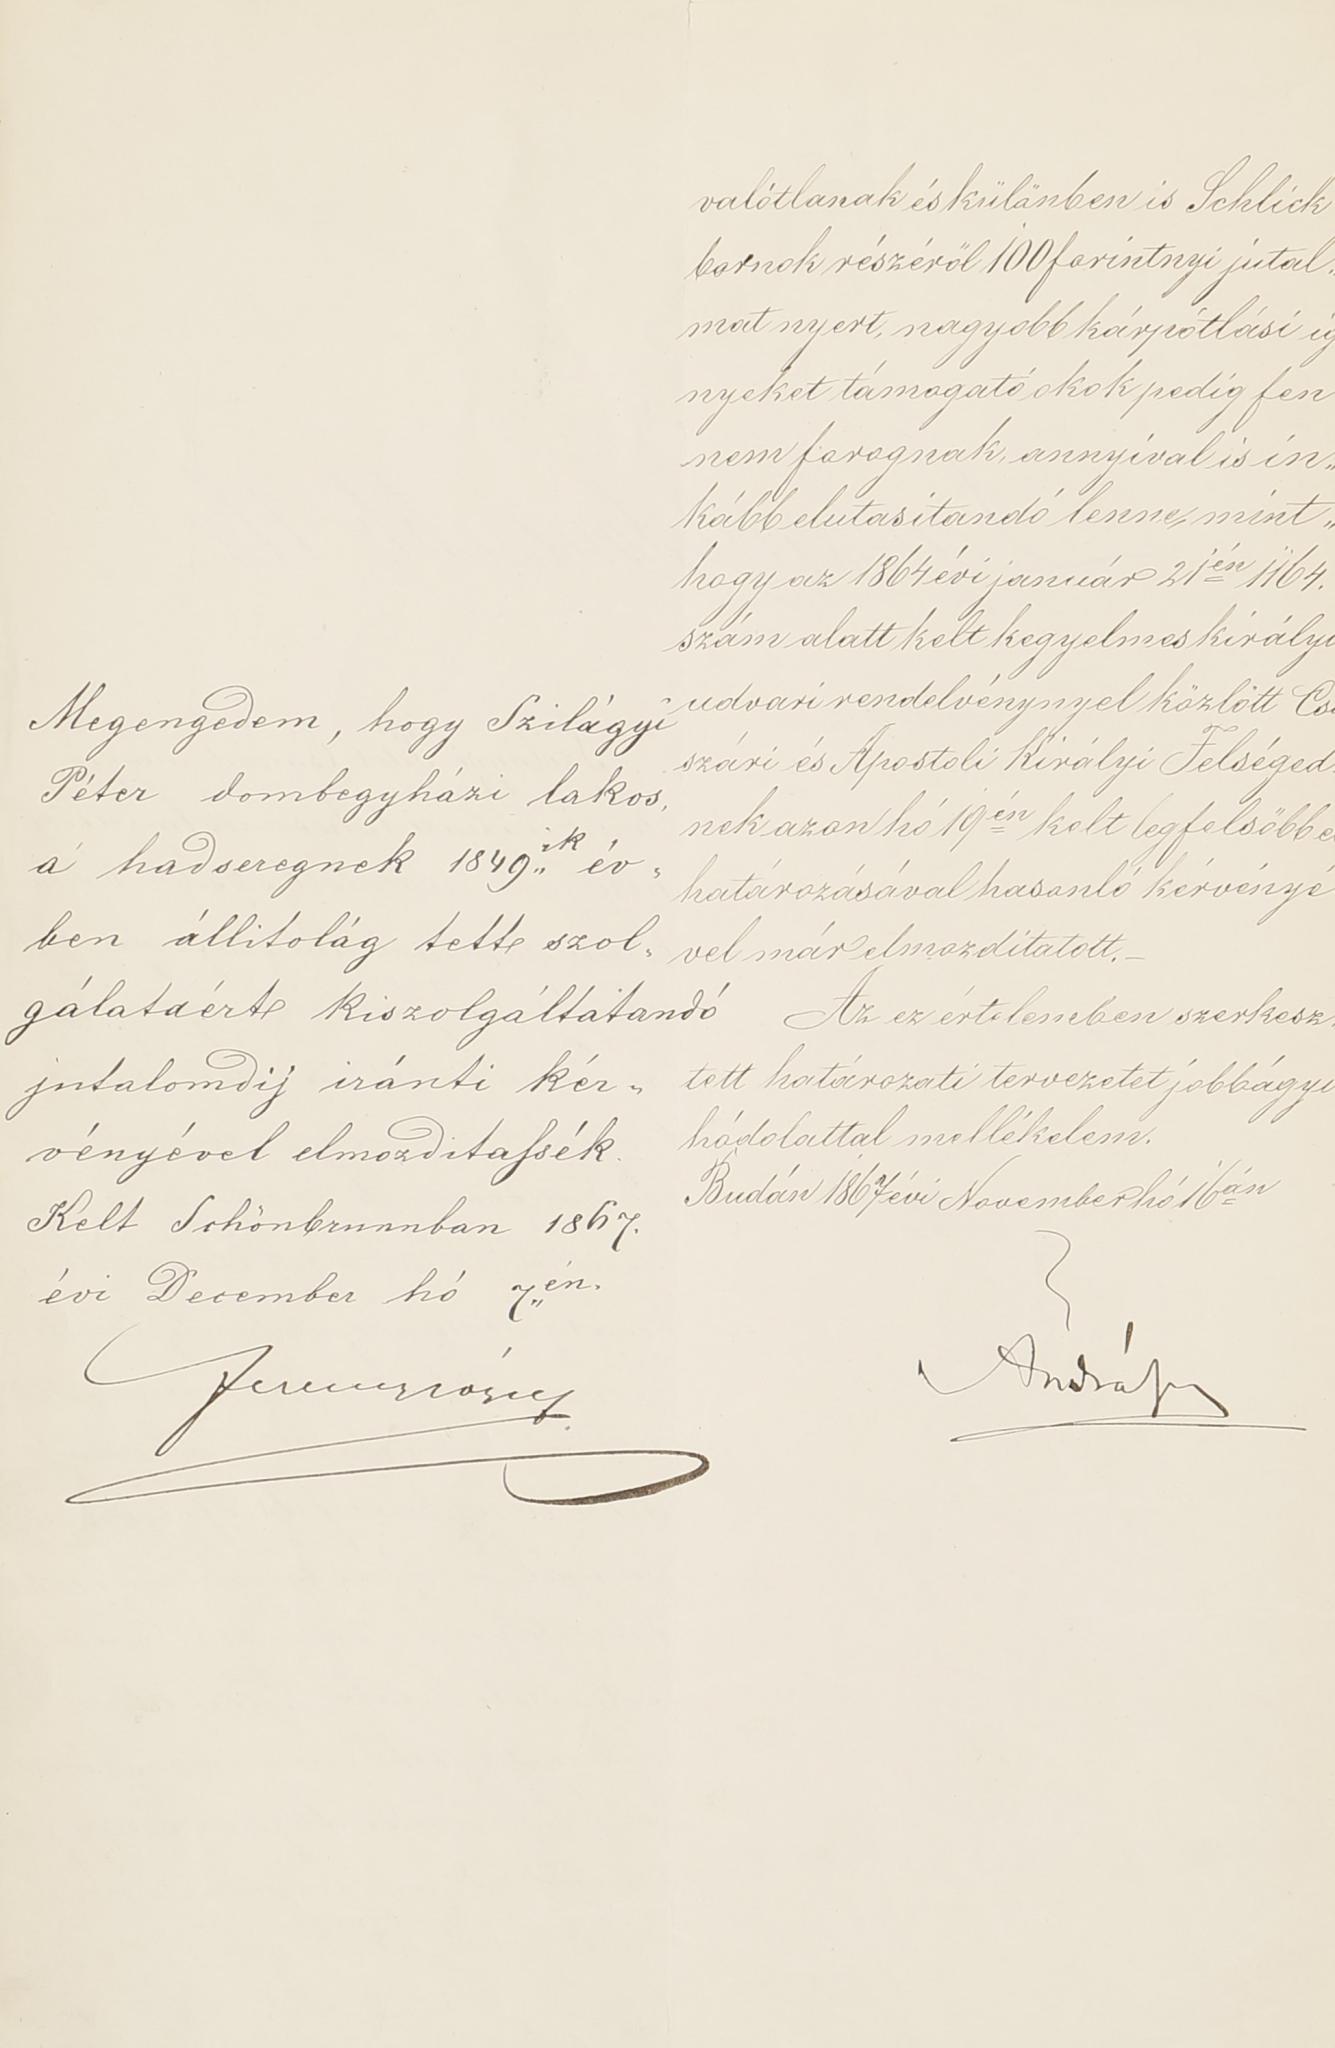 valótlanak és külömben is Schlick
tornok részéről 100 forintnyi jutal„
mat nyert, nagyobb kárpótlási ig
nyeket támogató okok pedig fen
nem forognak, annyival is in„
kább elutasitandó lenne, mint„
hogy az 1864 évi január 21én 1164.
szám alatt kelt kegyelmes királyi
udvari rendelvénynyel közlött Csá
szári és Apostoli Királyi Felséged
nek azon hó 19én kelt legfelsőbb e
határozásával hasonló kérvényé
vel már elmozdítatott.—
Az ez értelemben szerkesz„
tett határozati tervezetet jobbágyi
hódolattal mellékelem.
Budán 1867 évi November hó 16án
Andrássy
Megengedem, hogy Szilágyi
Péter dombegyházi lakos,
a' hadseregnek 1849„ik év„
ben állitolág tett szol„
gálataért kiszolgáltatandó
jutalomdij iránti kér„
vényével elmozditassék.
Kelt Schönbrunnban 1867.
évi December hó 7„én.
Ferencz József